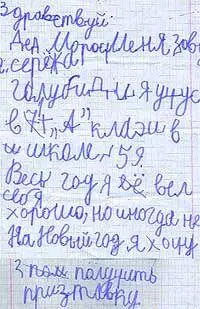 Здравствуй
Дед Мороз Меня зову
т серёжа
голубиД, и я учус
в 7т "А" классе в
школе N 59.
Весь год я вё вел
себя
хорошо, но иногда не
На Новый год я хочу
З пом получить
призтавку